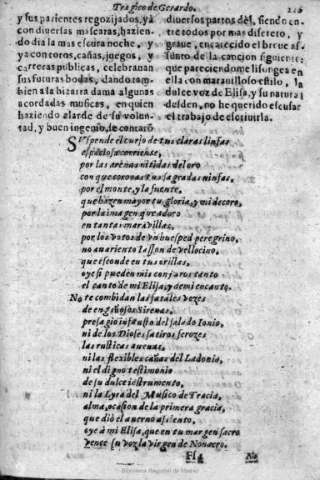 Tragico de Gerardo.
y sus parientes regozijados, ya
con diuersas mascaras, hazien-
do dia la mas escura noche, y
ya con toros, cañas, juegos, y
carreras publicas, celebrauan
sus futuras bodas, dando tam-
bien a la bizarra dama algunas
acordadas musicas, en quien
haziendo alarde de su volun-
tad, y buen ingenio, se contarõ
diuersos partos dèl, siendo en-
tre todos por mas discreto, y
graue, encarecido el breue as-
sunto de la cancion siguiente:
que pareciendome insigne en
ella con marauilloso estilo, la
dulce voz de Elisa, y su natural
desden, no he querido escusar
el trabajo de escriuirla.
SVspende el curso de tus claras linfas
espacioso corriente,
por las arenas nitidas del oro
con que coronas tus sagradas ninfas,
por el monte, y la fuente,
que hazen mayor tu gloria, y mi decoro,
por la imagen
en tantas marauillas,
por los votos de vn huesped peregrino,
no auariento Iasson de vellocino,
que esconde en tus orillas,
oye si pueden mis conjuros tanto
el canto de mi Elisa, y de mi encanto.
No te combidan las fatales vozes
de engañosas Sirenas,
presagio infausto del salado Ionio,
ni de los Dioses satiros ferozes
las rusticas auenas,
ni las flexibles cañas del Ladonia,
ni el digno testimonio
de su dulce instrumento,
ni la Lyra del Musico de Tracia,
alma, ocasion de la primera gracia,
que diò al auerno assiento,
oye à mi Elisa, que en tu margen sacro
vence su voz la virgen de Nonacro.
Ff 4
No
Biblioteca Regional de Madrid